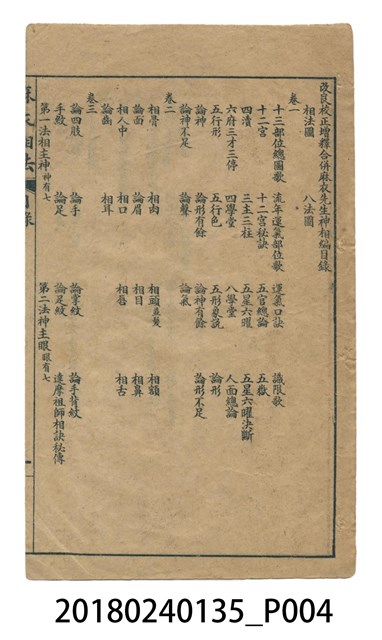 改良校正增釋合併麻衣先生神相編目錄
相法圖 八法圖
卷一
十三部位總圖歌 流年運氣部位歌 運氣口訣 識限歌
十二宮 十二宮秘訣 五官總論 五嶽
四瀆 三主三柱 五星六曜 五星六曜決斷
六府三才三停 四學堂 八學堂 人面總論
五行形 五行色 五形象說 論形
論神 論形有餘 論神有餘 論形不足
論神不足 論聲 論氣
卷二
相骨 相肉 相頭並髮 相額
論面 論眉 相目 相鼻
相人中 相口 相唇 相舌
論齒 相耳
卷三
論四肢 論手 論掌紋 論手背紋
手紋 論足 論足紋 達摩祖師相訣秘傳
第一法相主神神有七 第二法神主眼眼有七
麻衣相法 目錄
20180240135_P004